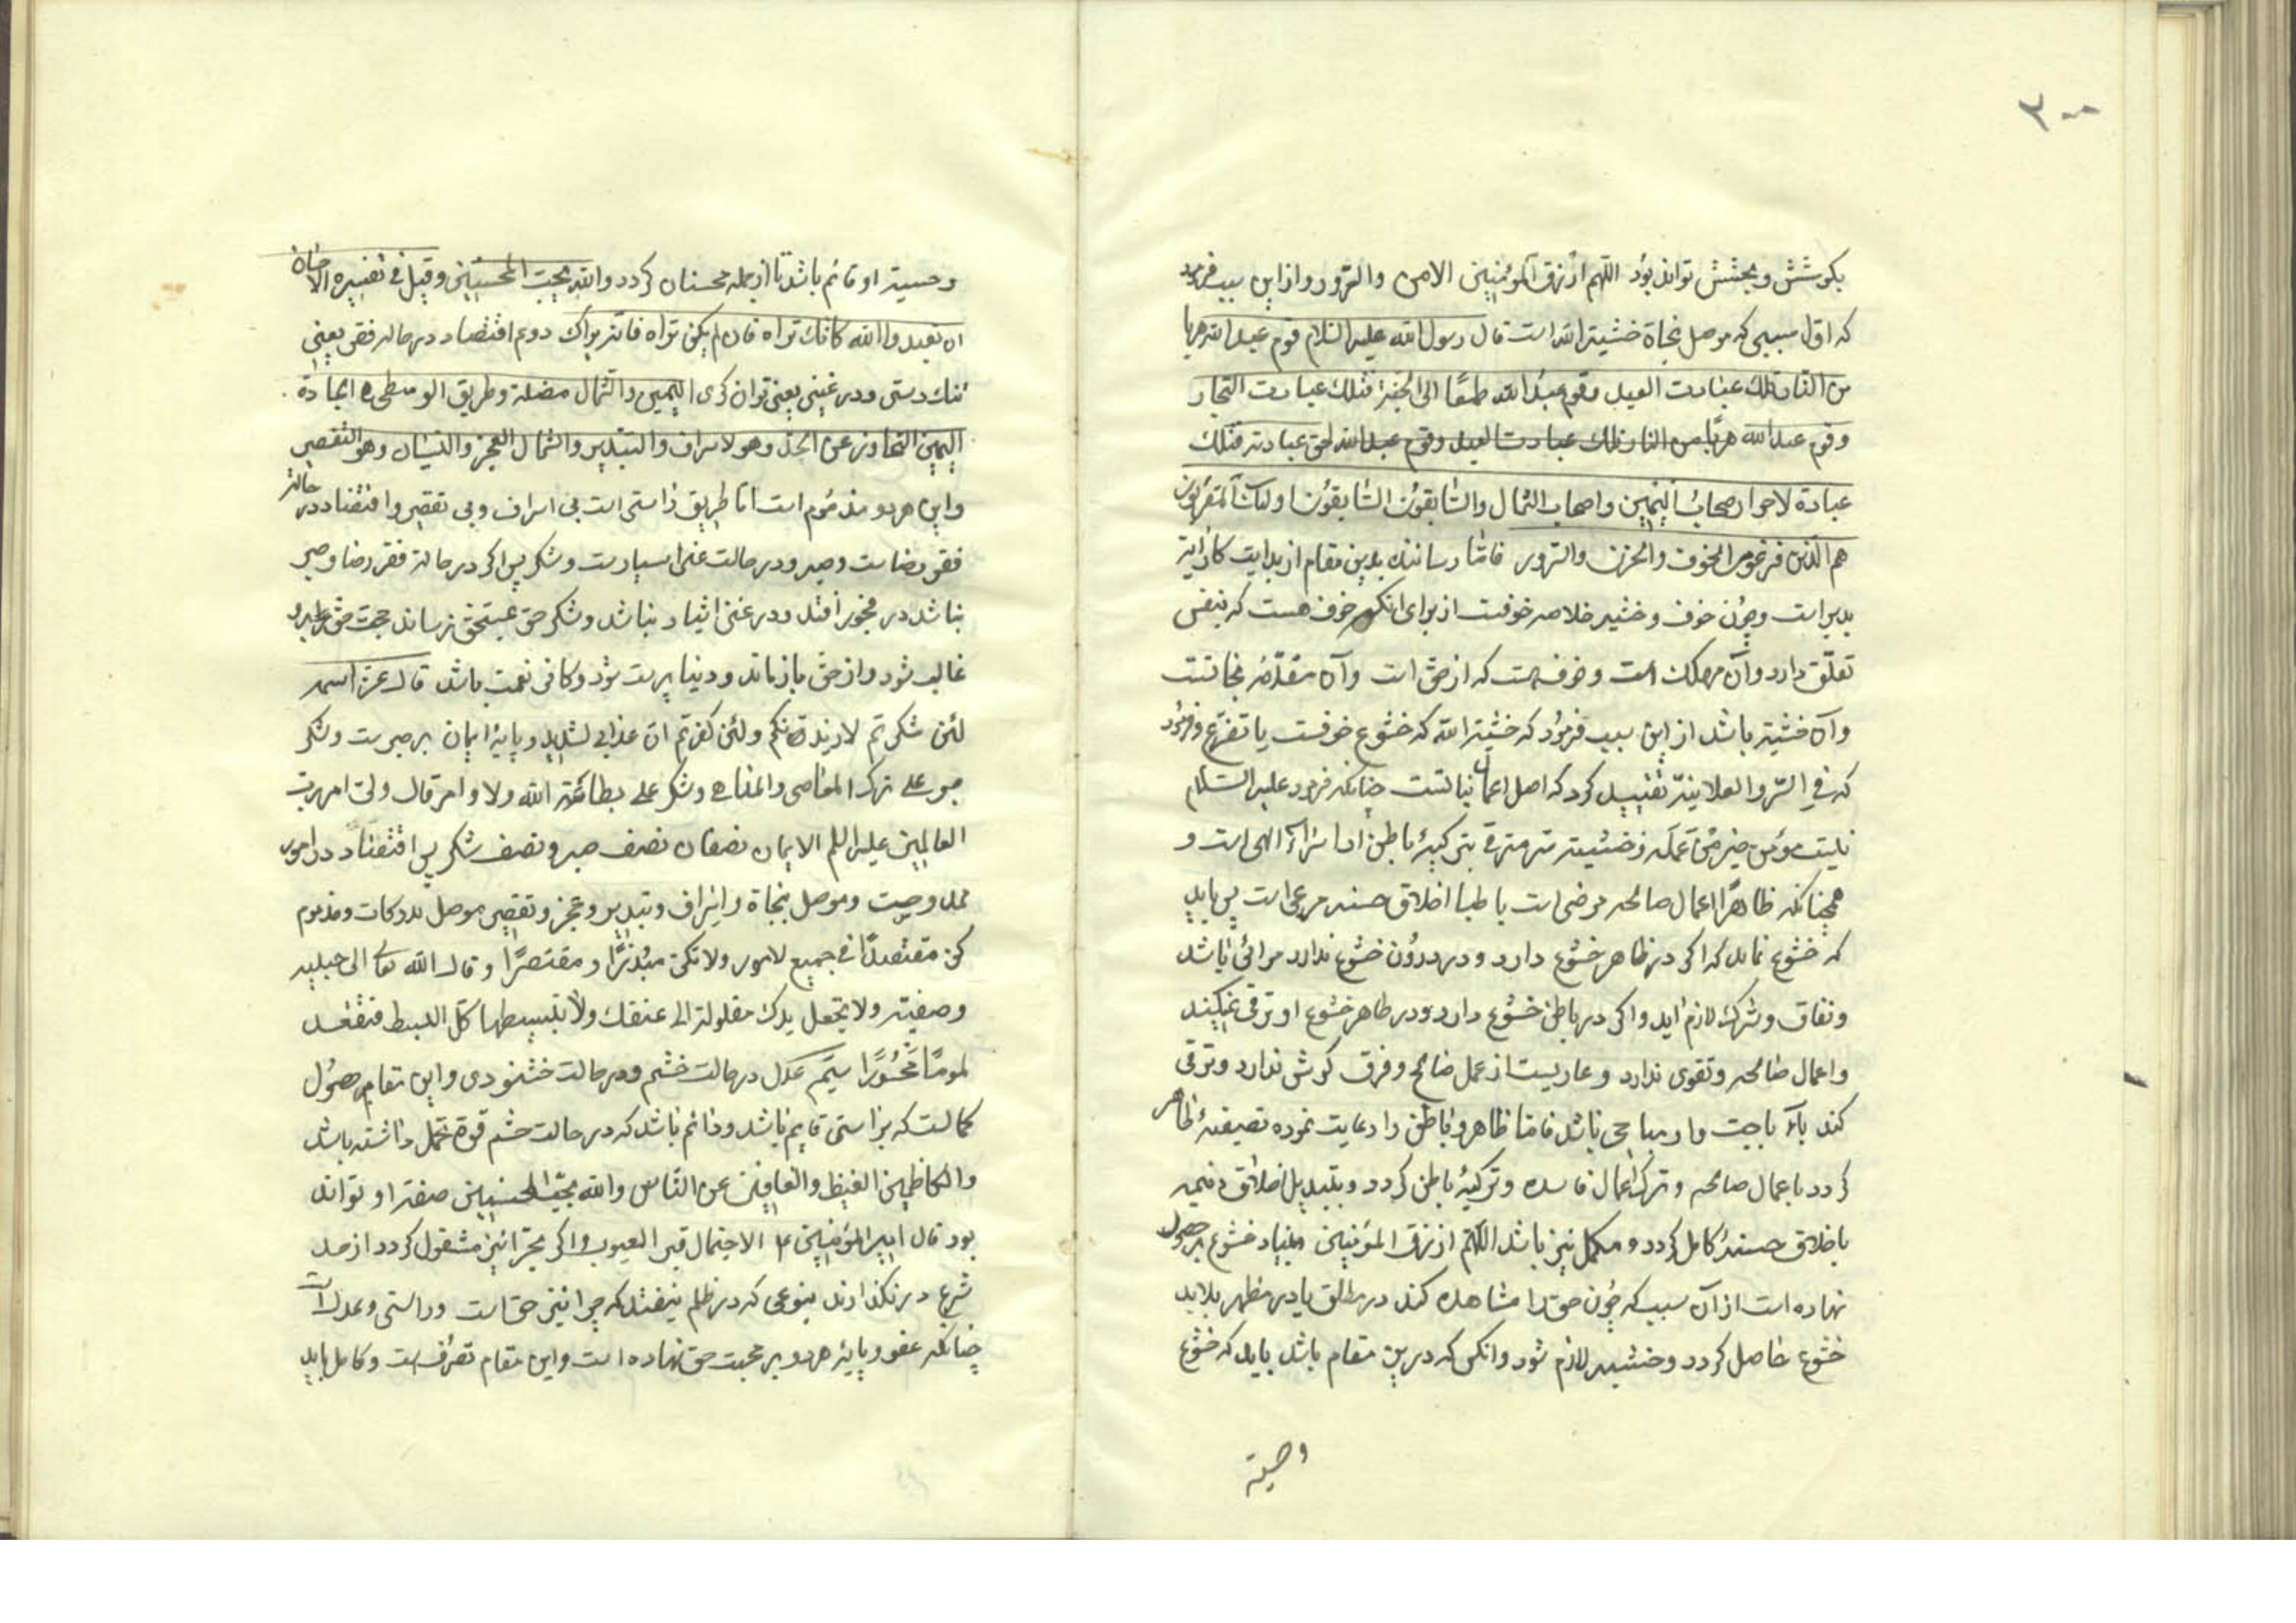 ۳۰۰
بکوشش و بخشش تواند بود اللهم ارزق المؤمنین الامن والسرور و از این سبب فرمود
که اول سببی که موصل نجاة خشیة الله است قال رسول الله علیه السلام قوم عبد الله هربا
من النار فتلک عبادت العبید وقوم عبد الله طمعًا الی الجنة فتلک عبادت التجار
وقوم عبد الله هربًا من النار فتلک عبادت العبید وقوم عبد الله لحق عبادته فتلک
عبادة لاحرار اصحاب الیمین واصحاب الشمال والسابقون السابقون اولئک المقربون
هم الذین فرغوا من الخوف والحزن والسرور فاما رسانند بدین مقام از بدایت کار
است و چون خوف و خشیه خلاصه خوفست از برای انکه خوف هست که بنفس
تعلّق دارد وآن مهلک است و خوف هست که از حق است وآن مقدّمهٔ نجاتست
وآن خشیة باشد از این سبب فرمود که خشیة الله که خشوع خوفست با تضرّع و فرمود
که فی السّر والعلانیة تقیید کرد که اصل اعمال نیاتست چنانکه فرمود علیه السلام
نیت مؤمن خیر من عمله و خشیته تزکیهٔ باطن اسرار الهی است و
همچنانکه ظاهرًا اعمال صالحه مرضی است باطنا اخلاق حسنه مرعی است پس باید
که خشوع نماید که اگر در ظاهر خشوع دارد و در درون خشوع ندارد مرائی باشد
و نفاق و شرک لازم اید و اگر در باطن خشوع دارد و در ظاهر خشوع او ترقی نمیکند
واعمال صالحه وتقوی ندارد و عاریست از عمل صالح و فرق کردش ندارد و ترقی
کند باباحیت واو مباحی باشد فاما ظاهر و باطن را رعایت نموده تصفیهٔ ظاهر
کردد باعمال صالحه و ترک اعمال فاسده و تزکیهٔ باطن کردد و بتبدیل اخلاق ذمیمه
باخلاق حسنه کامل کردد و مکمل نیز باشد اللهم ارزق المؤمنین و بنیاد خشوع بر حصول
نهاده است از آن سبب که چون حق را مشاهده کند در مطلق یا در مظهر بلابد
خشوع حاصل کردد و خشیه لازم شود وانکس که در ین مقام باشد باید که خشوع
وحسیة
وحسیة او قائم باشد تا از جمله محسنان کردد والله یحب المحسنین وقیل فی تفسیره الاحسان
ان تعبدوا الله کانک تراه فان لم یکن تراه فانه یراک دوم اقتصاد در حالة فقر یعنی
تنک دستی و در غنی یعنی توان کری الیمین والشمال مضلة وطریق الوسطی الجادة
الیمین التجاوز عن الحد وهو لاسراف والتبذیر والشمال العجز والنسیان وهو التقصیر
واین هر دو مذموم است اما طریق راستی است بی اسراف وبی تقصیر و اقتصاد در حالة
فقر رضاست وصبر ودر حالت غنی اسپارست و شکر پس اگر در حالة فقر رضا وصبر
نباشد در فجور افتد ودر غنی ایثار نباشد و شکر حق بمستحق نرساند حجت حق بر او
غالب شود واز حق باز ماند ودنیا پرست شود وکافر نعمت باشد قال عزّ اسمه
لئن شکرتم لازیدنّکم ولئن کفرتم انّ عذابی لشدید و پایهٔ ایمان بر صبرست و شکر
صبر علی ترک المعاصی والمناهی وشکر علی بطاعة الله ولاوامر قال ولیّ امر رب
العالمین علیه السلم الایمان نصفان نصف صبر و نصف شکر پس اقتصاد در امور
ممدوحست وموصل بنجاة واسراف وتبذیر وعجز وتقصیر موصل بدرکات و مذموم
کن مقتصدًا فی جمیع لامور ولا تکن مبذّرًا و مقتصرًا و قال الله تعالی حبیبه
وصفیته ولا تجعل یدک مغلولة الی عنقک ولا تبسطها کلّ البسط فتقعد
ملومًا محسورًا سیّم عدل در حالت خشم ودر حالت خشنودی واین مقام حصول
کمالست که براستی قایم باشد ودائم باشد که در حالت خشم قوة تحمل داشته باشد
والکاظمین الغیظ والعافین عن الناس والله یحبّ المحسنین صفة او تواند
بود قال امیر المؤمنین ع الاحتمال قبر العیوب و اگر بجزائیز مشغول کردد از حد
شرع در نکذارند بنوعی که در ظلم نیفتد که جزا نیز حق است وراستی وعدل است
چنانکه عفو و پایهٔ هر دو بر محبت حق نهاده است واین مقام تصرّفست و کامل باید